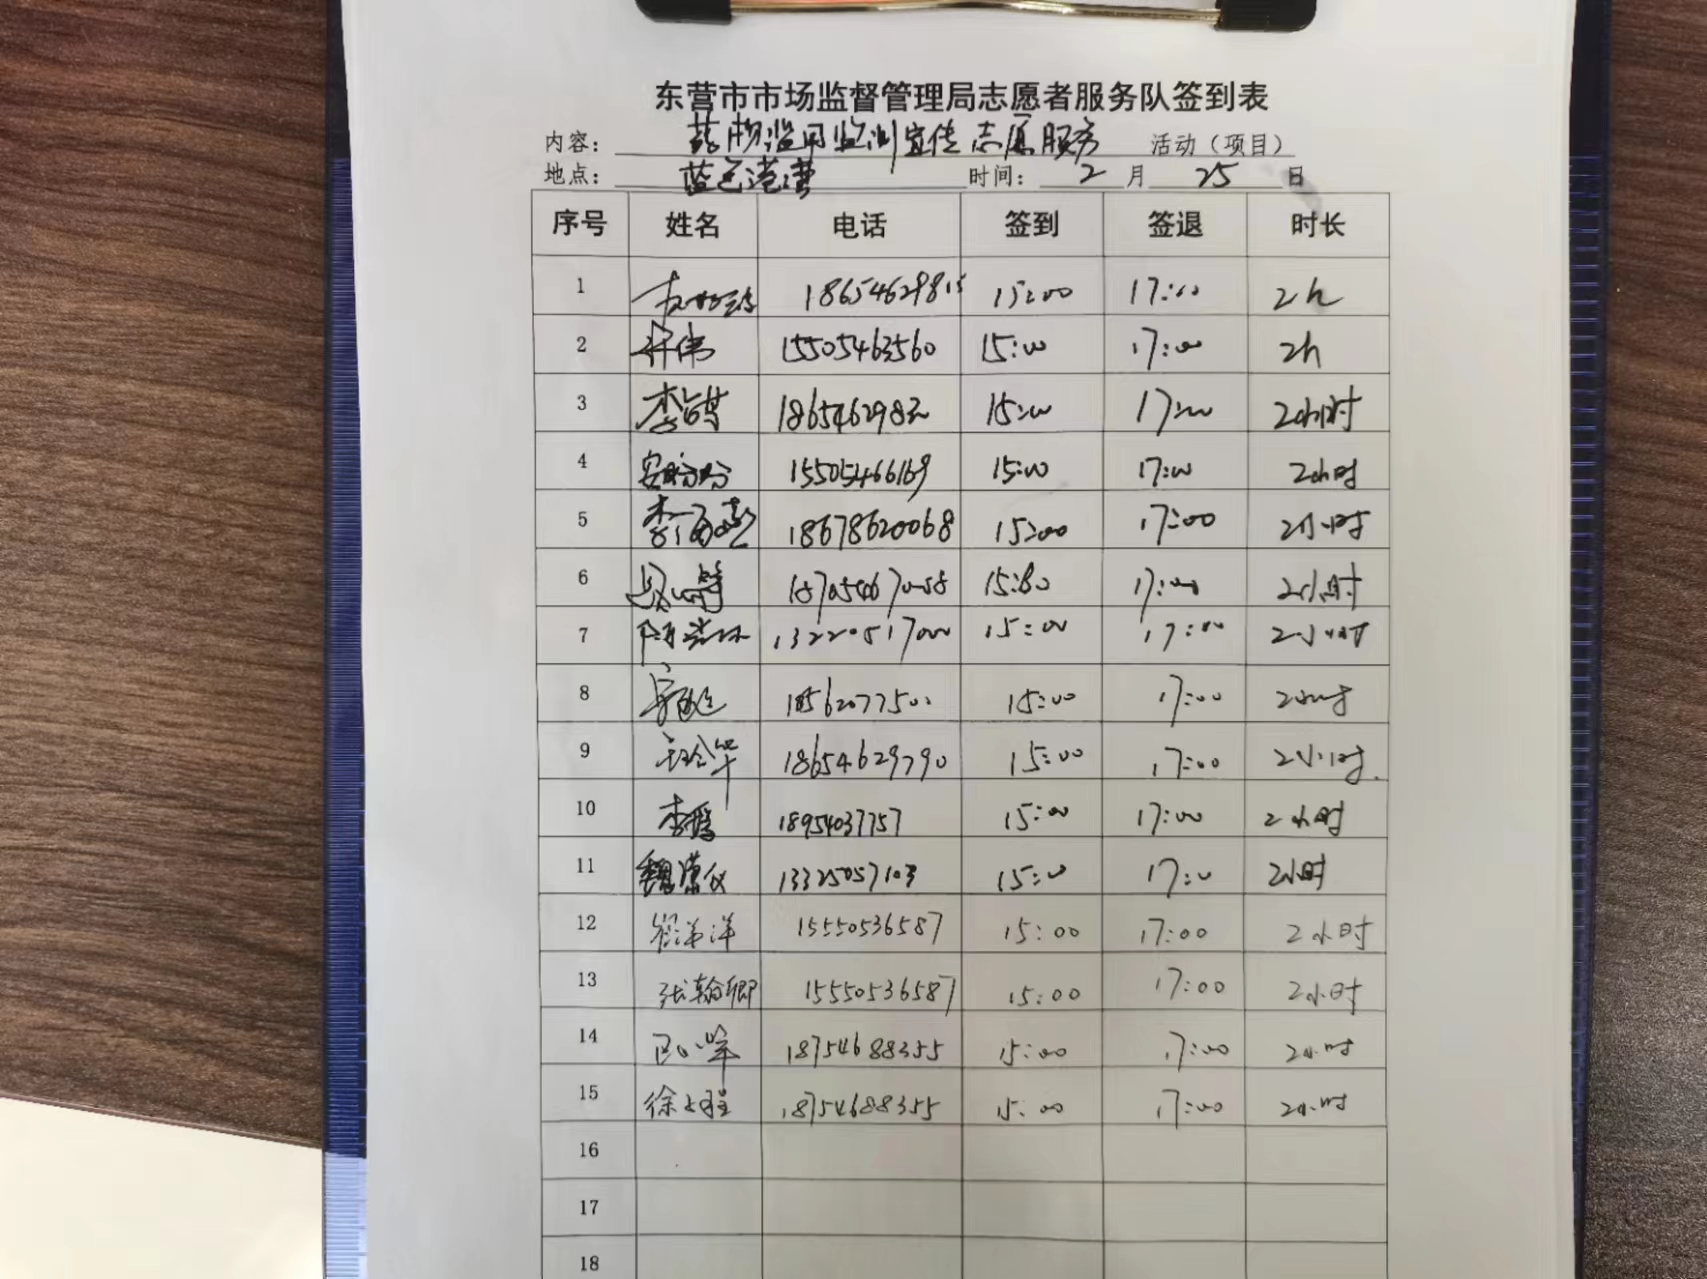 东营市市场监督管理局志愿者服务队签到表
内容: 药物滥用监测宣传志愿服务 活动（项目）
地点: 蓝色港湾 时间: 2 月 25 日
序号 姓名 电话 签到 签退 时长
1 18654629815 15:00 17:00 2h
2 许伟 15505463560 15:00 17:00 2h
3 15:00 17:00 2小时
4 安盼盼 15505466169 15:00 17:00 2小时
5 18678620068 15:00 17:00 2小时
6 17:00 2小时
7 13220517000 15:00 17:00 2小时
8 15:00 17:00 2小时
9 18654629790 15:00 17:00 2小时
10 18954037757 15:00 17:00 2小时
11 魏潇仪 13325057103 15:00 17:00 2小时
12 15550536587 15:00 17:00 2小时
13 张翰卿 15550536587 15:00 17:00 2小时
14 18754688355 15:00 17:00 2小时
15 18754688355 15:00 17:00 2小时
16
17
18